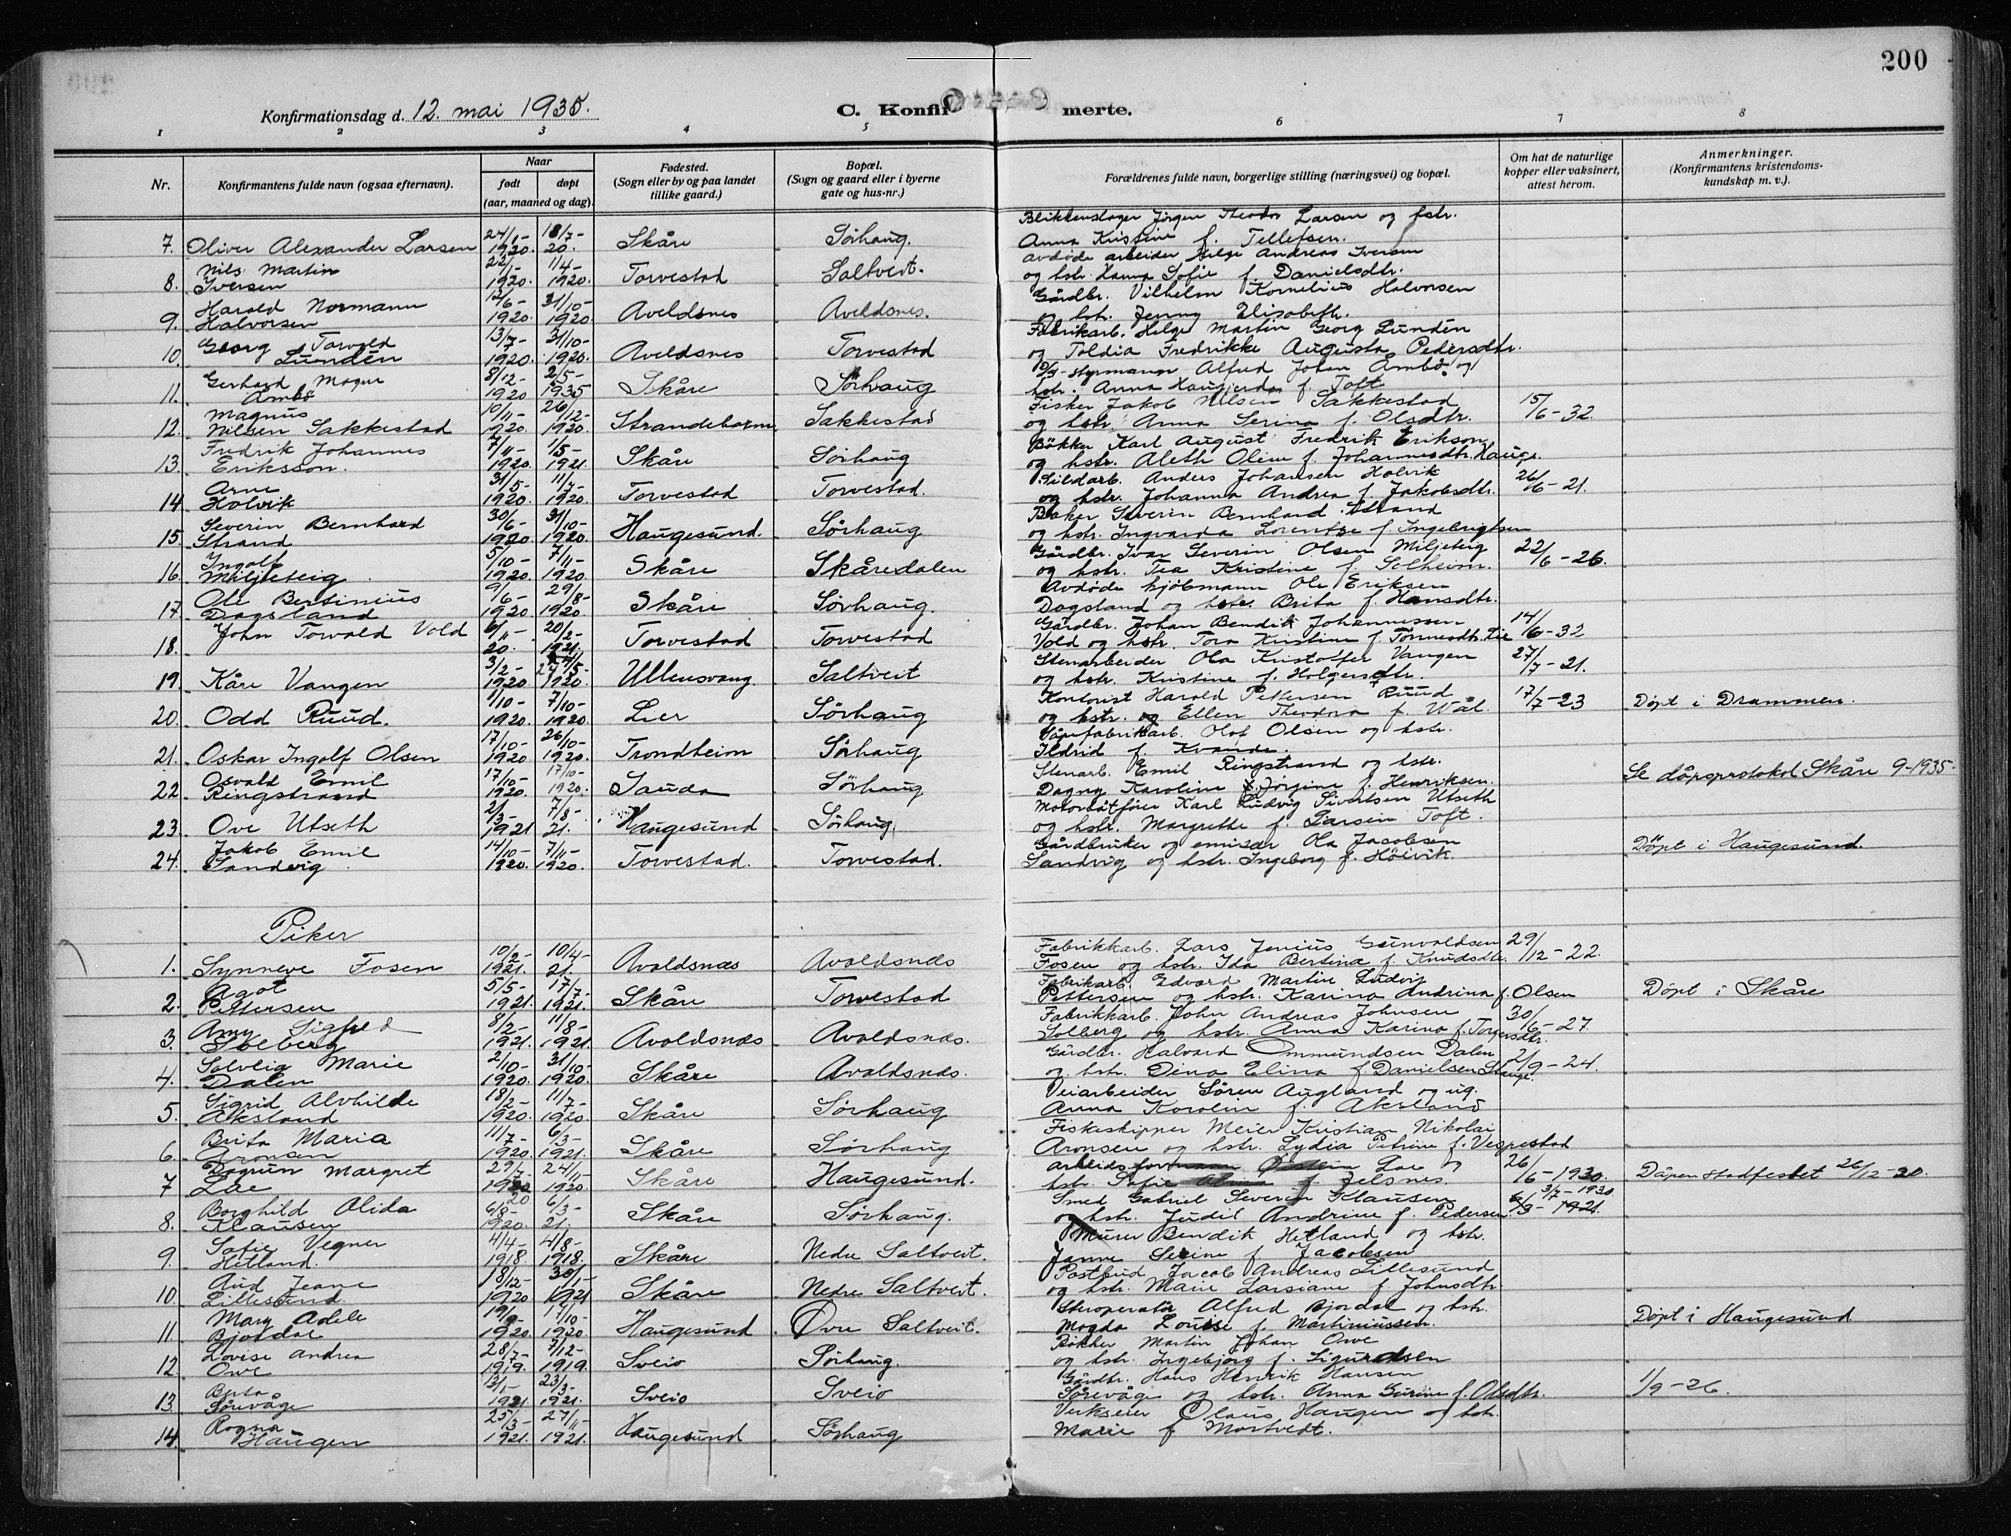 200
Konfirmationsdag d. 12. mai 1935.
C. Konfirmerte.
1 2 3 4 5 6 7 8
Nr.
Konfirmantens fulde navn (ogsaa efternavn).
Naar
født
døpt
(aar, maaned og dag).
Fødested.
(Sogn eller by og paa landet
tillike gaard.)
Bopæl.
(Sogn og gaard eller i byerne
gate og hus-nr.)
Forældrenes fulde navn, borgerlige stilling (næringsvei) og bopæl.
Om hat de naturlige
kopper eller vaksinert,
attest herom.
Anmerkninger.
(Konfirmantens kristendoms-
kundskap m. v.).
7. Oliver Alexander Larsen 24/1-1920. 18/7-20. Skåre Sörhaug. Blikkenslager Jörgen Theodor Larsen og hstr.
Anna Kristine f. Tellefsen.
8. Nils Martin Iversen 22/1-1920. 1/4-1920. Torvestad Saltveit. Avdöde arbeider Helge Andreas Iversen
og hstr. Hanna Sofie f. Danielsdtr.
9. Harald Normann Halvorsen 12/6-1920. 31/10-1920. Aveldsnes Aveldsnes. Gårdbr. Vilhelm Kornelius Halvorsen
og hstr. Jenny Elisabeth.
10. Georg Torvald Lundén 13/7-1920. 31/10-1920. Aveldsnes Torvestad Fabrikarb. Helge Martin Georg Lundén
og Toldia Fredrikke Augusta Pedersdtr.
11. Gerhard Magne Ambö 8/12-1920 2/5-1935 Skåre Sörhaug D/S-styrmann Alfred Johan Ambö og
hstr. Anna f. Toft
12. Magnus Nilsen Sakkestad 10/11-1920. 26/12-1920. Strandebarm Sakkestad Fisker Jakob Nilsen Sakkestad
og hstr. Anna Serina f. Olsdtr. 15/6-32
13. Fredrik Johannes Eriksson. 7/11-1920 1/5-1921. Skåre Sörhaug Bökker Karl August Fredrik Erikson
og hstr. Aleth Oline f. Johannesdtr. Hauge.
14 Arne Holvik 31/5-1920 11/7-1920. Torvestad Torvestad. Sildarb. Anders Johansen Holvik
og hstr. Johanna Andrea f. Jakobsdtr. 26/6-21.
15. Severin Bernhard Strand 30/6-1920 31/10-1920 Haugesund. Sörhaug Baker Severin Bernhard Strand
og hstr. Ingvarda Lorentze f. Ingebrigtsen
16. Ingolf Miljeteig 5/10-1920. 7/11-1920. Skåre Skåredalen Gårdbr. Ivar Severin Olsen Miljeteig
og hstr. Tea Kristine f. Solheim. 22/6-26.
17. Ole Bertinius Dagsland 9/6-1920 29/8-1920 Skåre Sörhaug. Avdöde kjöbmann Ole Eriksen
Dagsland og hstr. Brita f. Hansdtr.
18. John Torvald Vold 6/11-20. 20/2-1921. Torvestad Torvestad Gårdbr. Johan Bendik Johannessen
Vold og hstr. Tora Kristine f. 14/6-32
19. Kåre Vangen 3/2-1920. 1920. Ullensvang. Saltveit Stenarbeider Ola Kristoffer Vangen
og hstr. Kristine f. Holgersdtr. 27/7-21.
20. Odd Ruud. 1/10-1920 7/10-1920. Lier Sörhaug Kontorist Harald Pettersen Ruud
og hstr. og Ellen Theodora f. Wål. 17/7-23 Döpt i Drammen.
21. Oskar Ingolf Olsen 17/10-1920 26/10-1920. Trondheim Sörhaug Olof Olsen og hstr.
Ildrid f. Kvande.
22. Osvald Emil Ringstrand 17/10-1920. 17/10-1920. Sauda Sörhaug Stenarb. Emil Ringstrand og hstr.
Dagny Karoline Jörgine f. Henriksen. Se dåpsprotokol Skåre 9-1935.
23. Ove Utseth 2/3-1921 7/8-21. Haugesund Sörhaug. Motorbåtförer Karl Ludvig Sivertsen Utseth
og hstr. Margrethe f. Larsen Toft.
24. Jakob Emil Sandvig 14/10-1920. 7/11-1920. Torvestad. Torvestad. Gårdbruker og emisær Ola Jacobsen
Sandvig og hstr. Ingeborg f. Hölvik. Döpt i Haugesund.
Piker
1. Synneve Fosen 10/2-1921. 10/4-21. Avaldsnæs Avaldsnæs Fabrikkarb. Lars Junius Gunvaldsen
Fosen og hstr. Ida Bertina f. Knudsdtr. 29/12-22.
2. Agot Pettersen 5/5-1921. 17/7-1921. Skåre Torvestad Fabrikarb. Edvard Martin Ludvig
Pettersen og hstr. Karina Andrina f. Olsen Döpt i Skåre
3. Amy Sigfred Solberg 8/2-1921. 11/8-1921. Avaldsnæs Avaldsnæs. Fabrikkarb. John Andreas Johnsen
Solberg og hstr. Anna Karina f. Torgersdtr. 30/6-27
4. Solveig Marie Dalen 2/10-1920. 31/10-1920. Skåre Avaldsnæs. Gårdbr. Halvard Ommundsen Dalen
og hstr. Dina Elina f. Danielsen Stange. 2/9-24.
5. Sigrid Alvhilde Aksland 18/2-1920. 11/7-1920. Skåre Sörhaug Veiarbeider Sören Augland og ug.
Anna Karoline f. Aksland
6. Brita Maria Aronsen 11/7-1920. 6/3-1921. Skåre Sörhaug Fiskeskipper Meier Kristian Nikolai
Aronsen og hstr. Lydia Petrine f. Vespestad
7 Dagrun Margret Lae 29/7-1920 24/11-1920 Skåre Haugesund. Arbeidsformann Lae og
hstr. Sofie f. Jelsnes. 26/6-1930. Dåpen stadfestet 26/12-20.
8. Borghild Alida Klausen 6/8-1920. 6/3-21. Skåre Sörhaug. Smed Gabriel Severin Klausen
og hstr. Judit Andrine f. Pedersen 3/7-1930 6/9-1921.
9. Sofie Vegner Hetland. 4/4-1918. 4/8-1918. Skåre Nedre Saltveit. Murer Bendik Hetland og hstr.
Janne Serine f. Jacobsen
10. Aud Jeane Lillesund. 18/12-1920 30/1-1921 Skåre Nedre Saltveit. Postbud Jacob Andreas Lillesund
og hstr. Marie Larsiane f. Johnsdtr.
11. Mary Adele Bjordal 19/9-1920. 17/10-1920 Haugesund Övre Saltveit. Alfred Bjordal og hstr.
Magda Louise f. Martiniussen. Döpt i Haugesund
12 Lovise Andrea Owe 28/7-1919. 7/12-1919. Sveio Sörhaug. Bökker Martin Johan Owe
og hstr. Ingebjörg f. Sigurdsen
13. Berta Sörevåge 13/1-1921 23/3-1921. Sveio Sveio Gårdbr. Hans Henrik Hansen
Sörevåge og hstr. Anna Gurine f. Olsdtr. 1/9-26.
14. Ragna Haugen 25/3-1921. 27/11-1921. Haugesund Sörhaug Verkseier Olaus Haugen og hstr.
Marie f. Mortvedt.